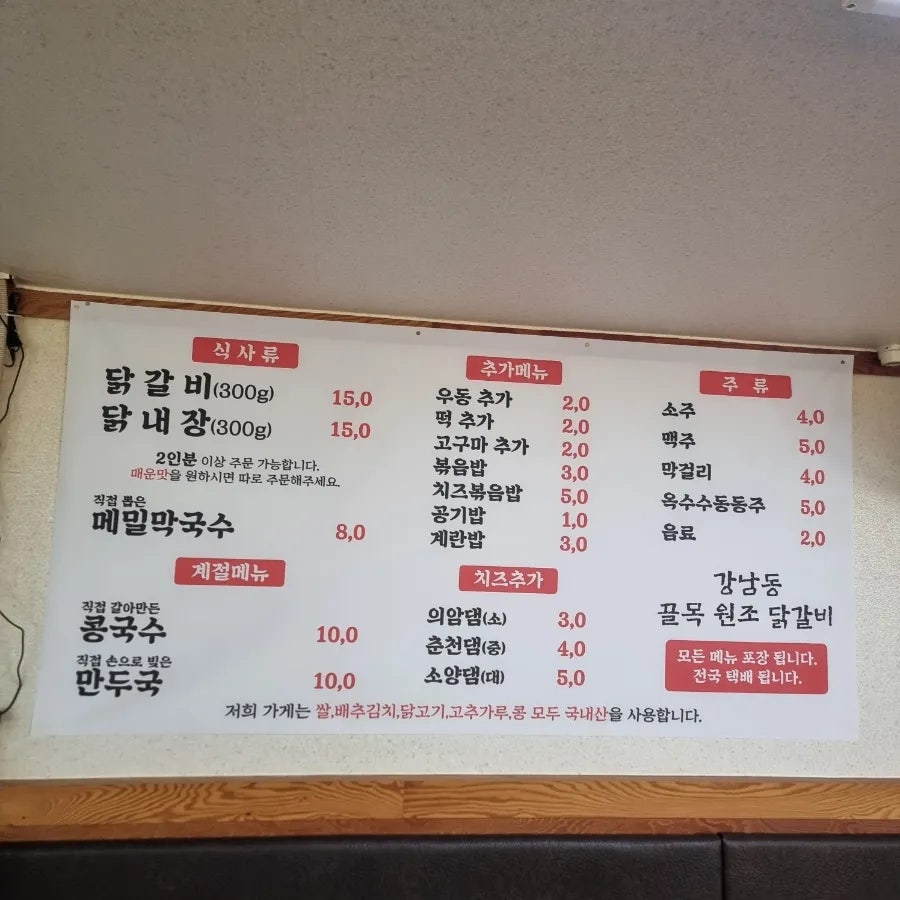 식사류
닭갈비(300g) 15,0
닭내장(300g) 15,0
2인분 이상 주문 가능합니다.
매운맛을 원하시면 따로 주문해주세요.
직접 뽑은
메밀막국수 8,0
계절메뉴
직접 갈아만든
콩국수 10,0
직접 손으로 빚은
만두국 10,0
추가메뉴
우동 추가 2,0
떡 추가 2,0
고구마 추가 2,0
볶음밥 3,0
치즈볶음밥 5,0
공기밥 1,0
계란밥 3,0
치즈추가
의암댐(소) 3,0
춘천댐(중) 4,0
소양댐(대) 5,0
주류
소주 4,0
맥주 5,0
막걸리 4,0
옥수수동동주 5,0
음료 2,0
강남동
끌목 원조 닭갈비
모든 메뉴 포장 됩니다.
전국 택배 됩니다.
저희 가게는 쌀,배추김치,닭고기,고추가루,콩 모두 국내산을 사용합니다.